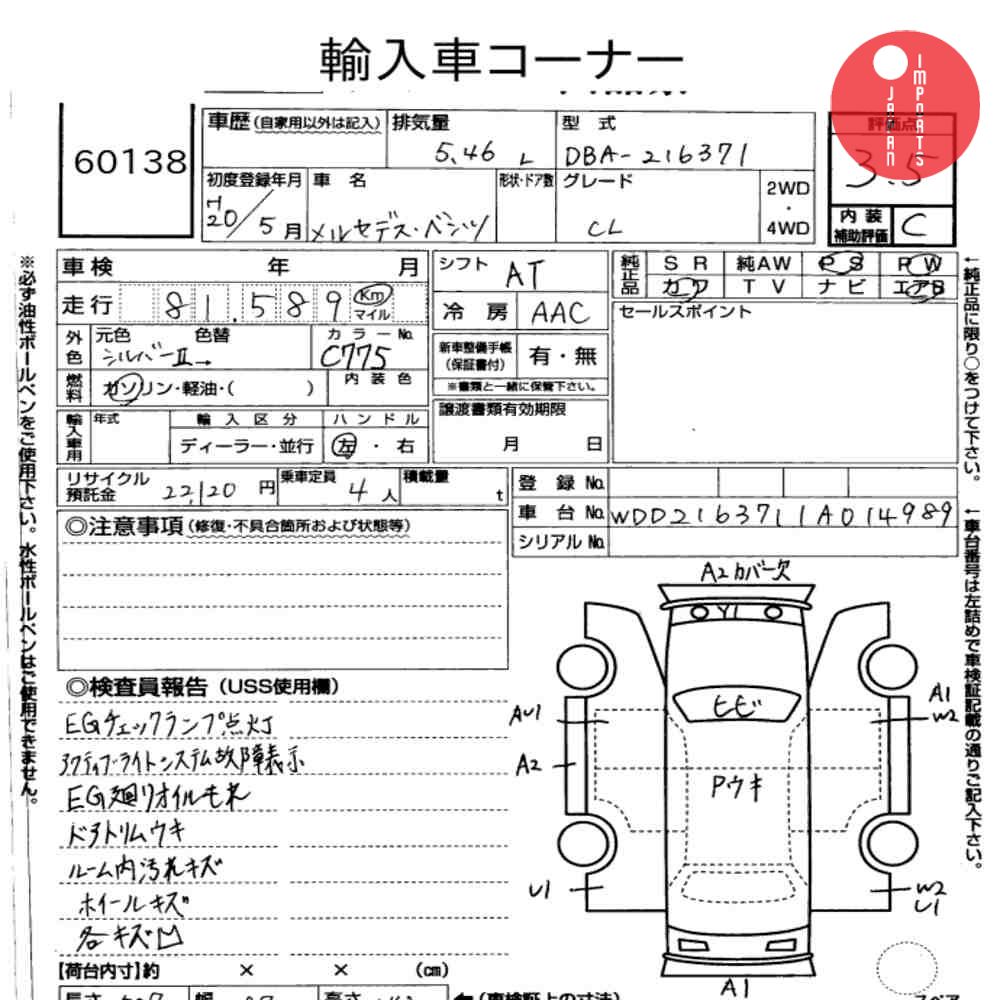 輸入車コーナー
JAPAN IMPORTS
60138
車歴(自家用以外は記入)
排気量 5.46 L
型式 DBA-216371
評価点 3.5
初度登録年月 H20/5月
車名 メルセデス・ベンツ
形状・ドア数
グレード CL
2WD・4WD
内装補助評価 C
車検 年 月
シフト AT
純正品 SR 純AW PS PW
カワ TV ナビ エアB
走行 81,589 Km マイル
冷房 AAC
セールスポイント
外色 元色 シルバーII→ 色替 カラーNo. C775
新車整備手帳(保証書付) 有・無
※書類と一緒に保管下さい。
燃料 ガソリン・軽油・( )
内装色
譲渡書類有効期限 月 日
輸入車用 年式 輸入区分 ハンドル
ディーラー・並行 左・右
リサイクル預託金 22,120円
乗車定員 4人
積載量 t
登録No.
車台No. WDD2163711A014989
シリアルNo.
◎注意事項(修復・不具合箇所および状態等)
※必ず油性ボールペンをご使用下さい。水性ボールペンはご使用できません。
←純正品に限り○をつけて下さい。
←車台番号は左詰めで車検証記載の通りご記入下さい。
◎検査員報告(USS使用欄)
EGチェックランプ点灯
アクティブライトシステム故障表示
EG廻りオイルモレ
ドアトリムウキ
ルーム内汚れキズ
ホイールキズ
各キズ凹
A2カバー欠
Y1
ヒビ
AU1
A1
W2
A2
Pウキ
U1
W2
U1
A1
【荷台内寸】約 × × (cm)
長さ 幅 高さ
←(車検証上の寸法)
スペア